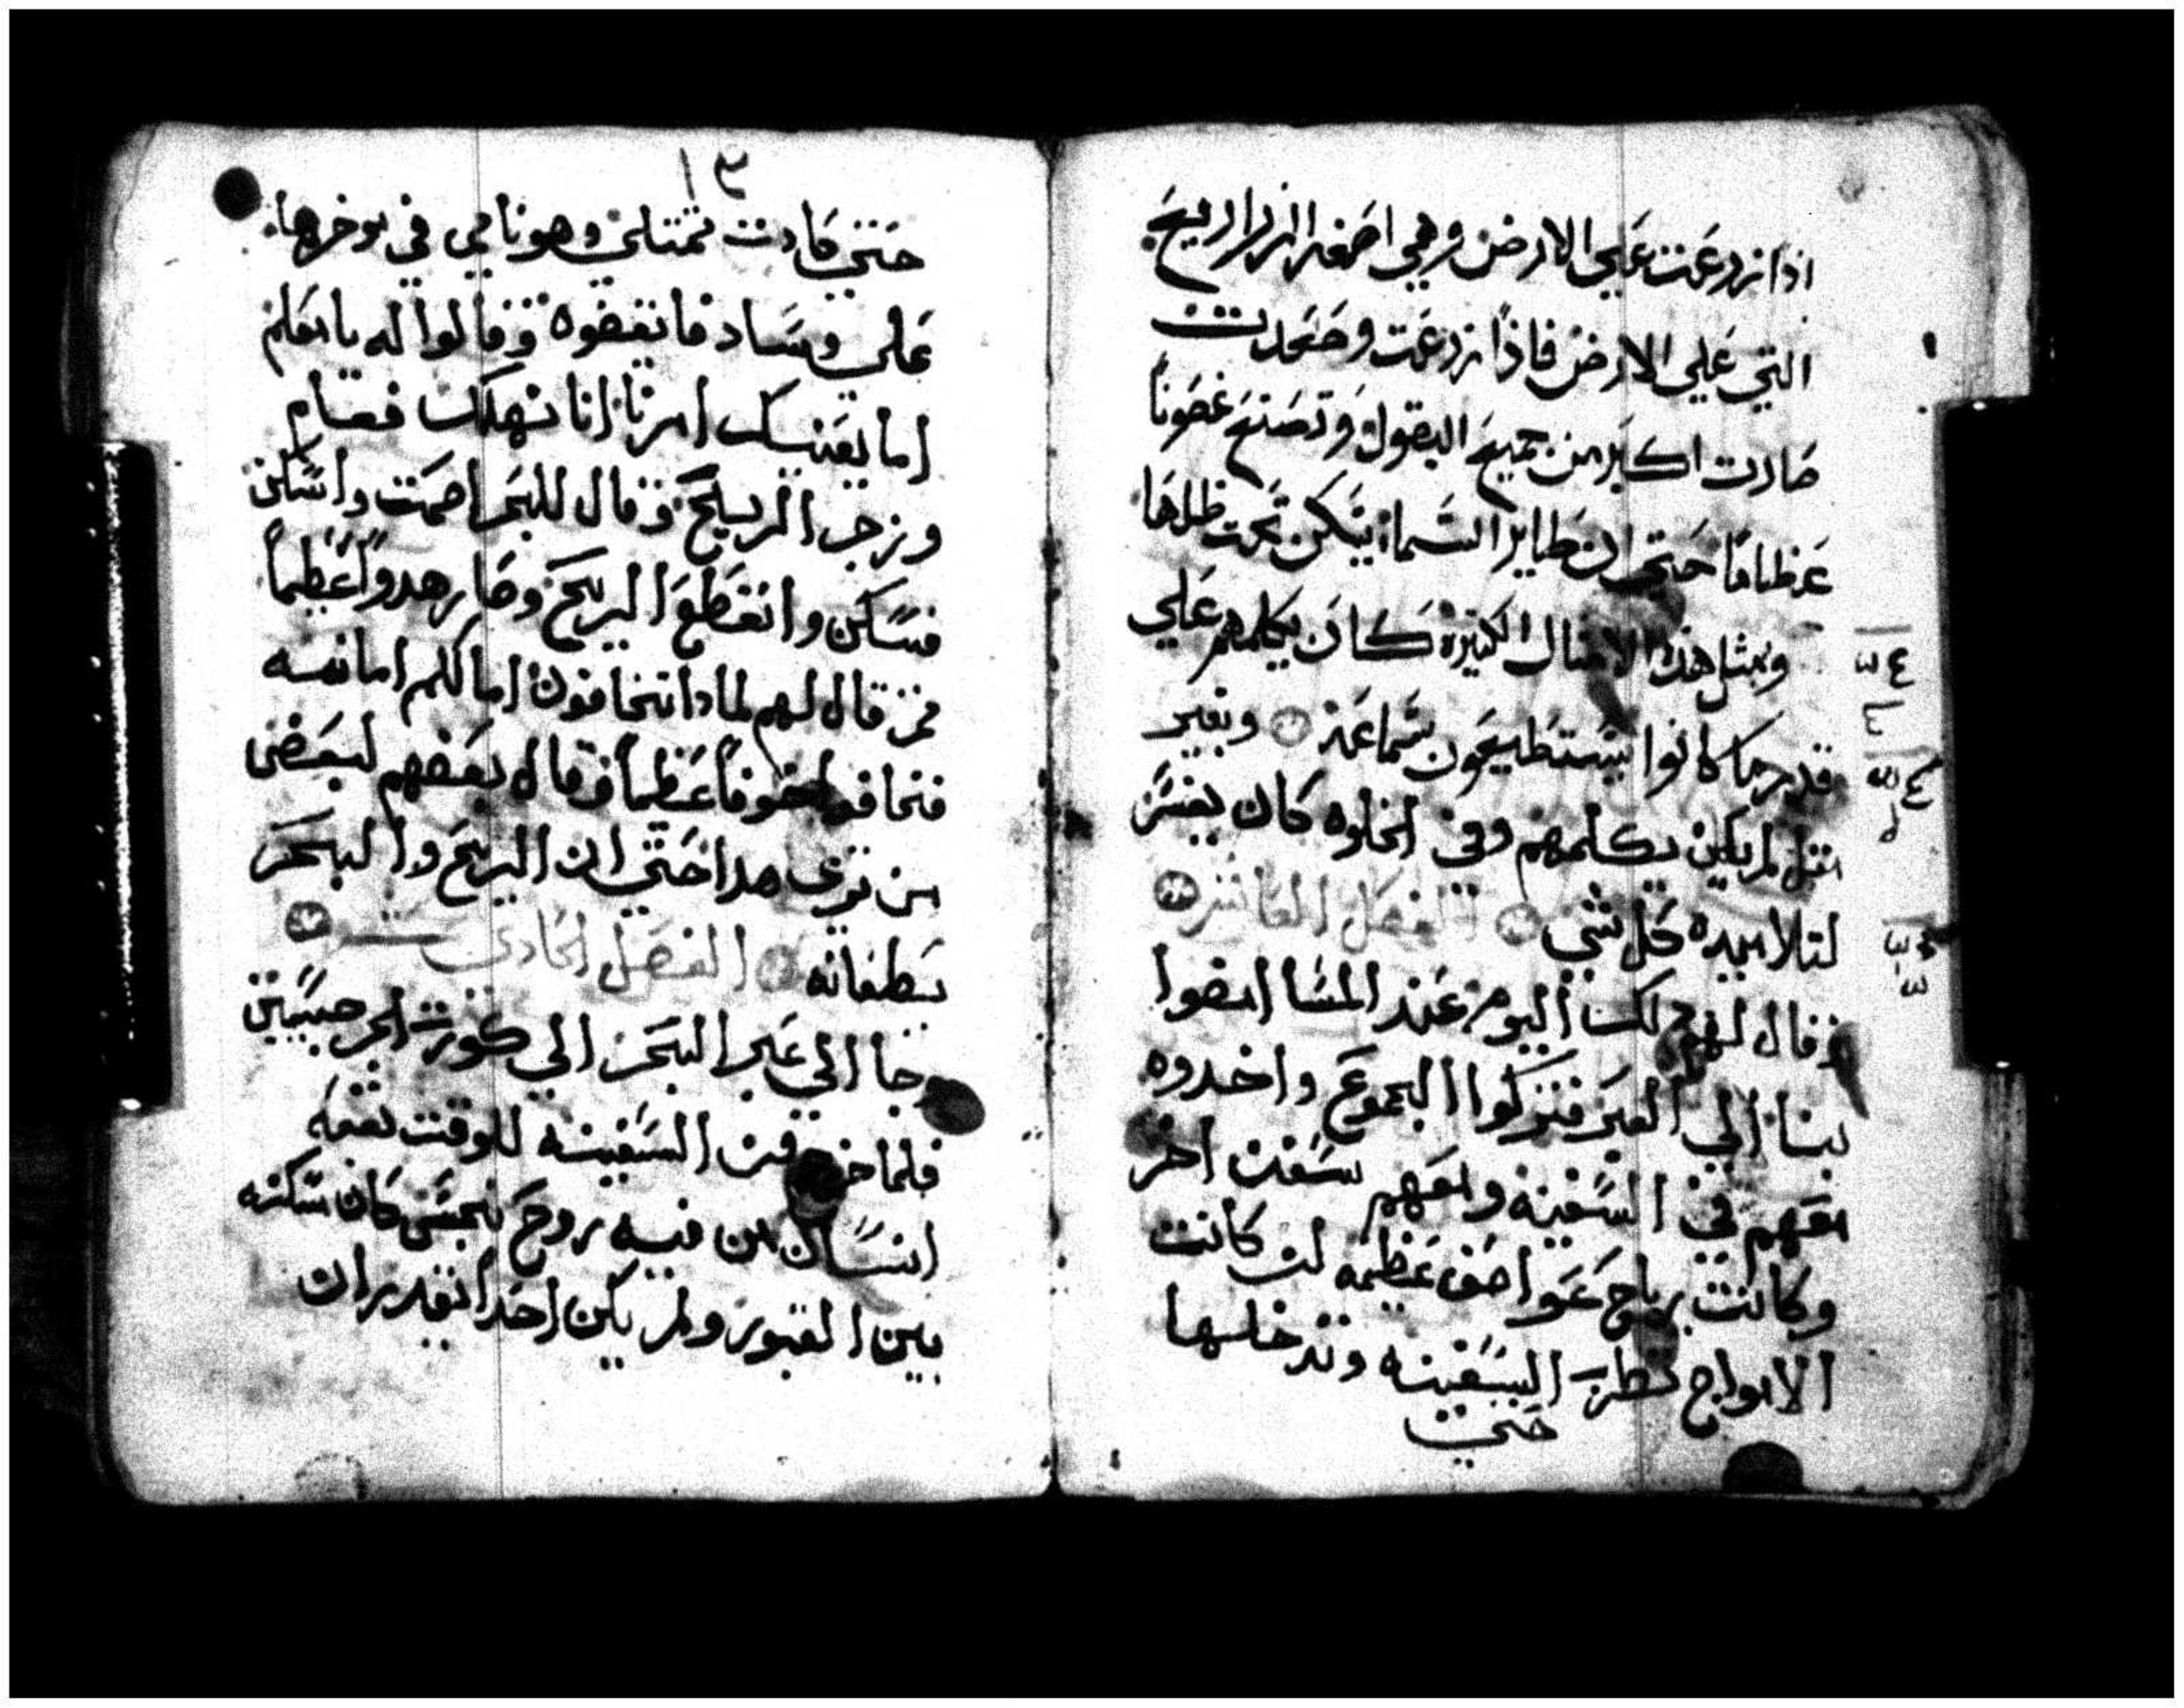 اذا زرعت علي الارض وهي اصغر الزراريع
التي علي الارض فاذا زرعت وصعدت
صارت اكبر من جميع البقول وتصنع غصونا
عظاما حتي ان طاير السما يسكن تحت ظلها
وبمثل هذه الامثال الكثيرة كان يكلمهم علي
قدر ما كانوا يستطيعون سماعه وبغير
مثل لم يكن يكلمهم وفي الخلوه كان يفسر
لتلاميده كل شي الفصل العاشر
وقال لهم دلك اليوم عند المسا امضوا
بنا الي العبر فتركوا الجموع واخدوه
معهم في السفينه ومعهم سفن اخر
وكانت رياح عواصف عظيمه كانت
الامواج تطرب السفينه وتدخلها
حتي
١٣
حتي كادت تمتلي وهو نايم في موخرها
علي وساد فايقضوه وقالوا له يا معلم
اما يعنيك امرنا اننا نهلك فقام
وزجر الريح وقال للبحر اصمت واسكن
فسكن وانقطع الريح وصار هدوا عظيما
ثم قال لهم لمادا تخافون اما لكم امانه
فخافوا خوفا عظيما وقال بعضهم لبعض
من تري هدا حتي ان الريح والبحر
يطيعانه الفصل الحادي عشر
وجا الي عبر البحر الي كورة الجرجسيين
فلما خرج من السفينه للوقت لقيه
انسان من فيه روح نجس كان مسكنه
بين القبور ولم يكن احدا يقدر ان